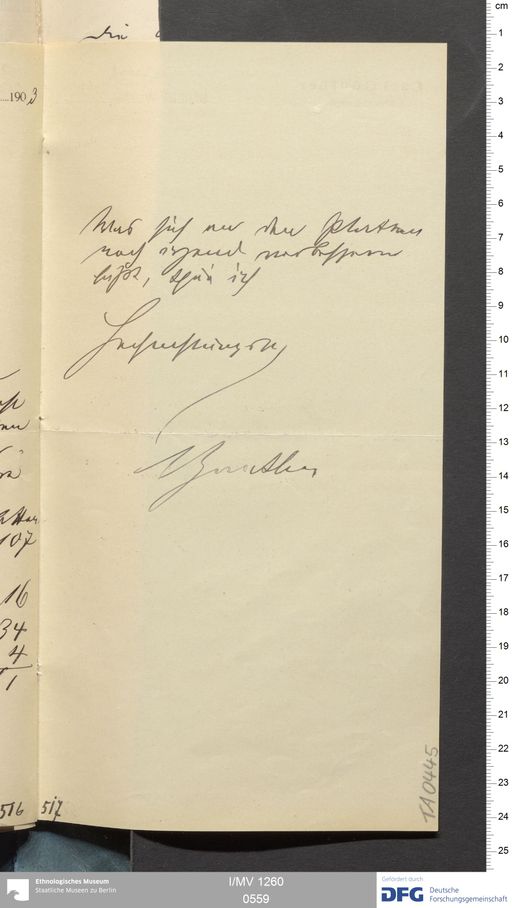 die
190 3
Was sich an den Platten
noch irgend verbessern
läßt, thue ich
Hochachtungsvoll
107
16
34
4
1
516
517
1A0445
cm
1
2
3
4
5
6
7
8
9
10
11
12
13
14
15
16
17
18
19
20
21
22
23
24
25
Ethnologisches Museum
Staatliche Museen zu Berlin
I/MV 1260
0559
Gefördert durch
DFG Deutsche
Forschungsgemeinschaft